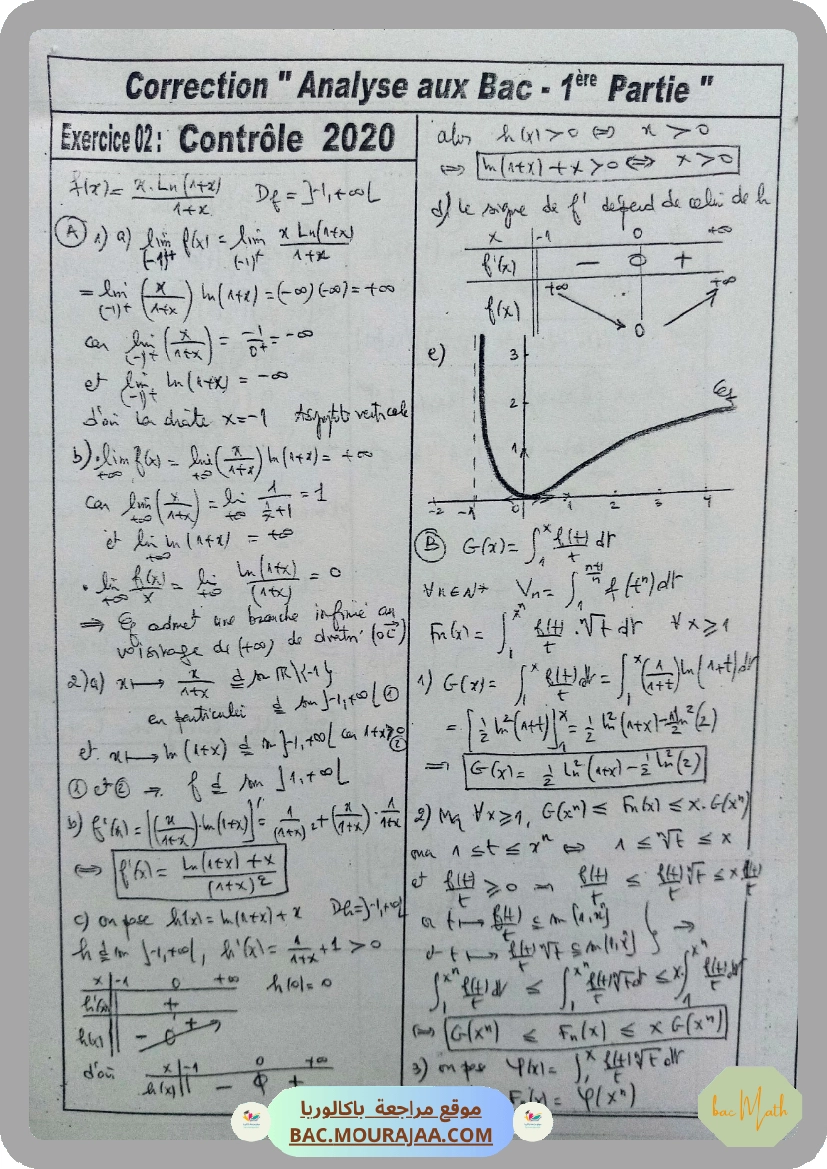 Correction " Analyse aux Bac - 1ère Partie "
Exercice 02 : Contrôle 2020
f(x) = x.Ln(1+x)/1+x Df = ]-1,+∞[
(A) 1) a) lim (-1)+ f(x) = lim (-1)+ x Ln(1+x)/1+x
= lim (-1)+ (x/1+x) ln(1+x) = (-∞)(-∞) = +∞
car lim (-1)+ (x/1+x) = -1/0+ = -∞
et lim (-1)+ ln(1+x) = -∞
d'où la droite x=-1 Asymptote verticale
b) • lim +∞ f(x) = lim +∞ (x/1+x) ln(1+x) = +∞
car lim +∞ (x/1+x) = lim +∞ 1/(1/x +1) = 1
et lim +∞ ln(1+x) = +∞
• lim +∞ f(x)/x = lim +∞ ln(1+x)/(1+x) = 0
⇒ Cf admet une branche infinie au
voisinage de (+∞) de
2) a) x ⟼ x/1+x d sur IR\{-1}
en particulier d sur ]-1,+∞[ ①
et x ⟼ ln(1+x) d sur ]-1,+∞[ car 1+x>0 ②
① et ② ⇒ f d sur ]1,+∞[
b) f'(x) = [(x/1+x).ln(1+x)]' = 1/(1+x)² + (x/1+x) . 1/1+x
⇔ f'(x) = ln(1+x) + x/(1+x)²
c) on pose h(x) = ln(1+x) + x Dh = ]-1,+∞[
h d sur ]-1,+∞[, h'(x) = 1/1+x + 1 > 0
x -1 0 +∞ h(0) = 0
h'(x) +
h(x) - 0 +
d'où x -1 0 +∞
h(x) - 0 +
alors h(x) > 0 ⇔ x > 0
⇔ ln(1+x) + x > 0 ⇔ x > 0
d) le signe de f' dépend de celui de h
x -1 0 +∞
f'(x) - 0 +
+∞ +∞
f(x)
0
e)
3
2
1
-2 -1 0 1 2 3 4
Cf
(B) G(x) = ∫₁ˣ f(t)/t dt
∀n∈IN* Vn = ∫₁^(n+1/n) f(tⁿ) dt
Fn(x) = ∫₁^(xⁿ) f(t)/t . ⁿ√t dt ∀x ≥ 1
1) G(x) = ∫₁ˣ f(t)/t dt = ∫₁ˣ (1/1+t) ln(1+t) dt
= [1/2 ln²(1+t)]₁ˣ = 1/2 ln²(1+x) - 1/2 ln²(2)
⇒ G(x) = 1/2 Ln²(1+x) - 1/2 Ln²(2)
2) Mq ∀x≥1, G(xⁿ) ≤ Fn(x) ≤ x.G(xⁿ)
ona 1 ≤ t ≤ xⁿ ⇔ 1 ≤ ⁿ√t ≤ x
et f(t)/t ≥ 0 ⇒ f(t)/t ≤ f(t)/t ⁿ√t ≤ x f(t)/t
or t ⟼ f(t)/t
et t ⟼ f(t)/t ⁿ√t
∫₁^(xⁿ) f(t)/t dt ≤ ∫₁^(xⁿ) f(t)/t ⁿ√t dt ≤ x ∫₁^(xⁿ) f(t)/t dt
⇔ G(xⁿ) ≤ Fn(x) ≤ x G(xⁿ)
3) on pose φ(x) = ∫₁ˣ f(t)/t ⁿ√t dt
Fn(x) = φ(xⁿ)
موقع مراجعة باكالوريا
BAC.MOURAJAA.COM
bac Math